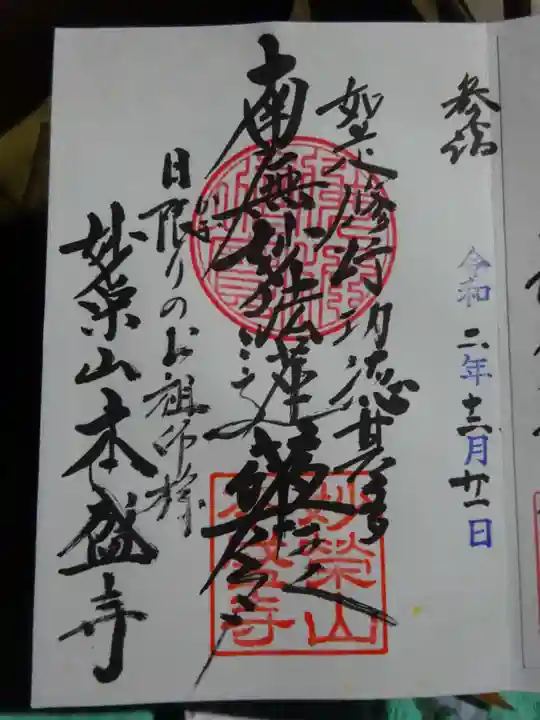 参詣
令和二年十二月廿一日
如是修行功徳甚多
南無妙法蓮華経
日限りのお祖師様
妙栄山本盛寺
妙榮山
本盛寺